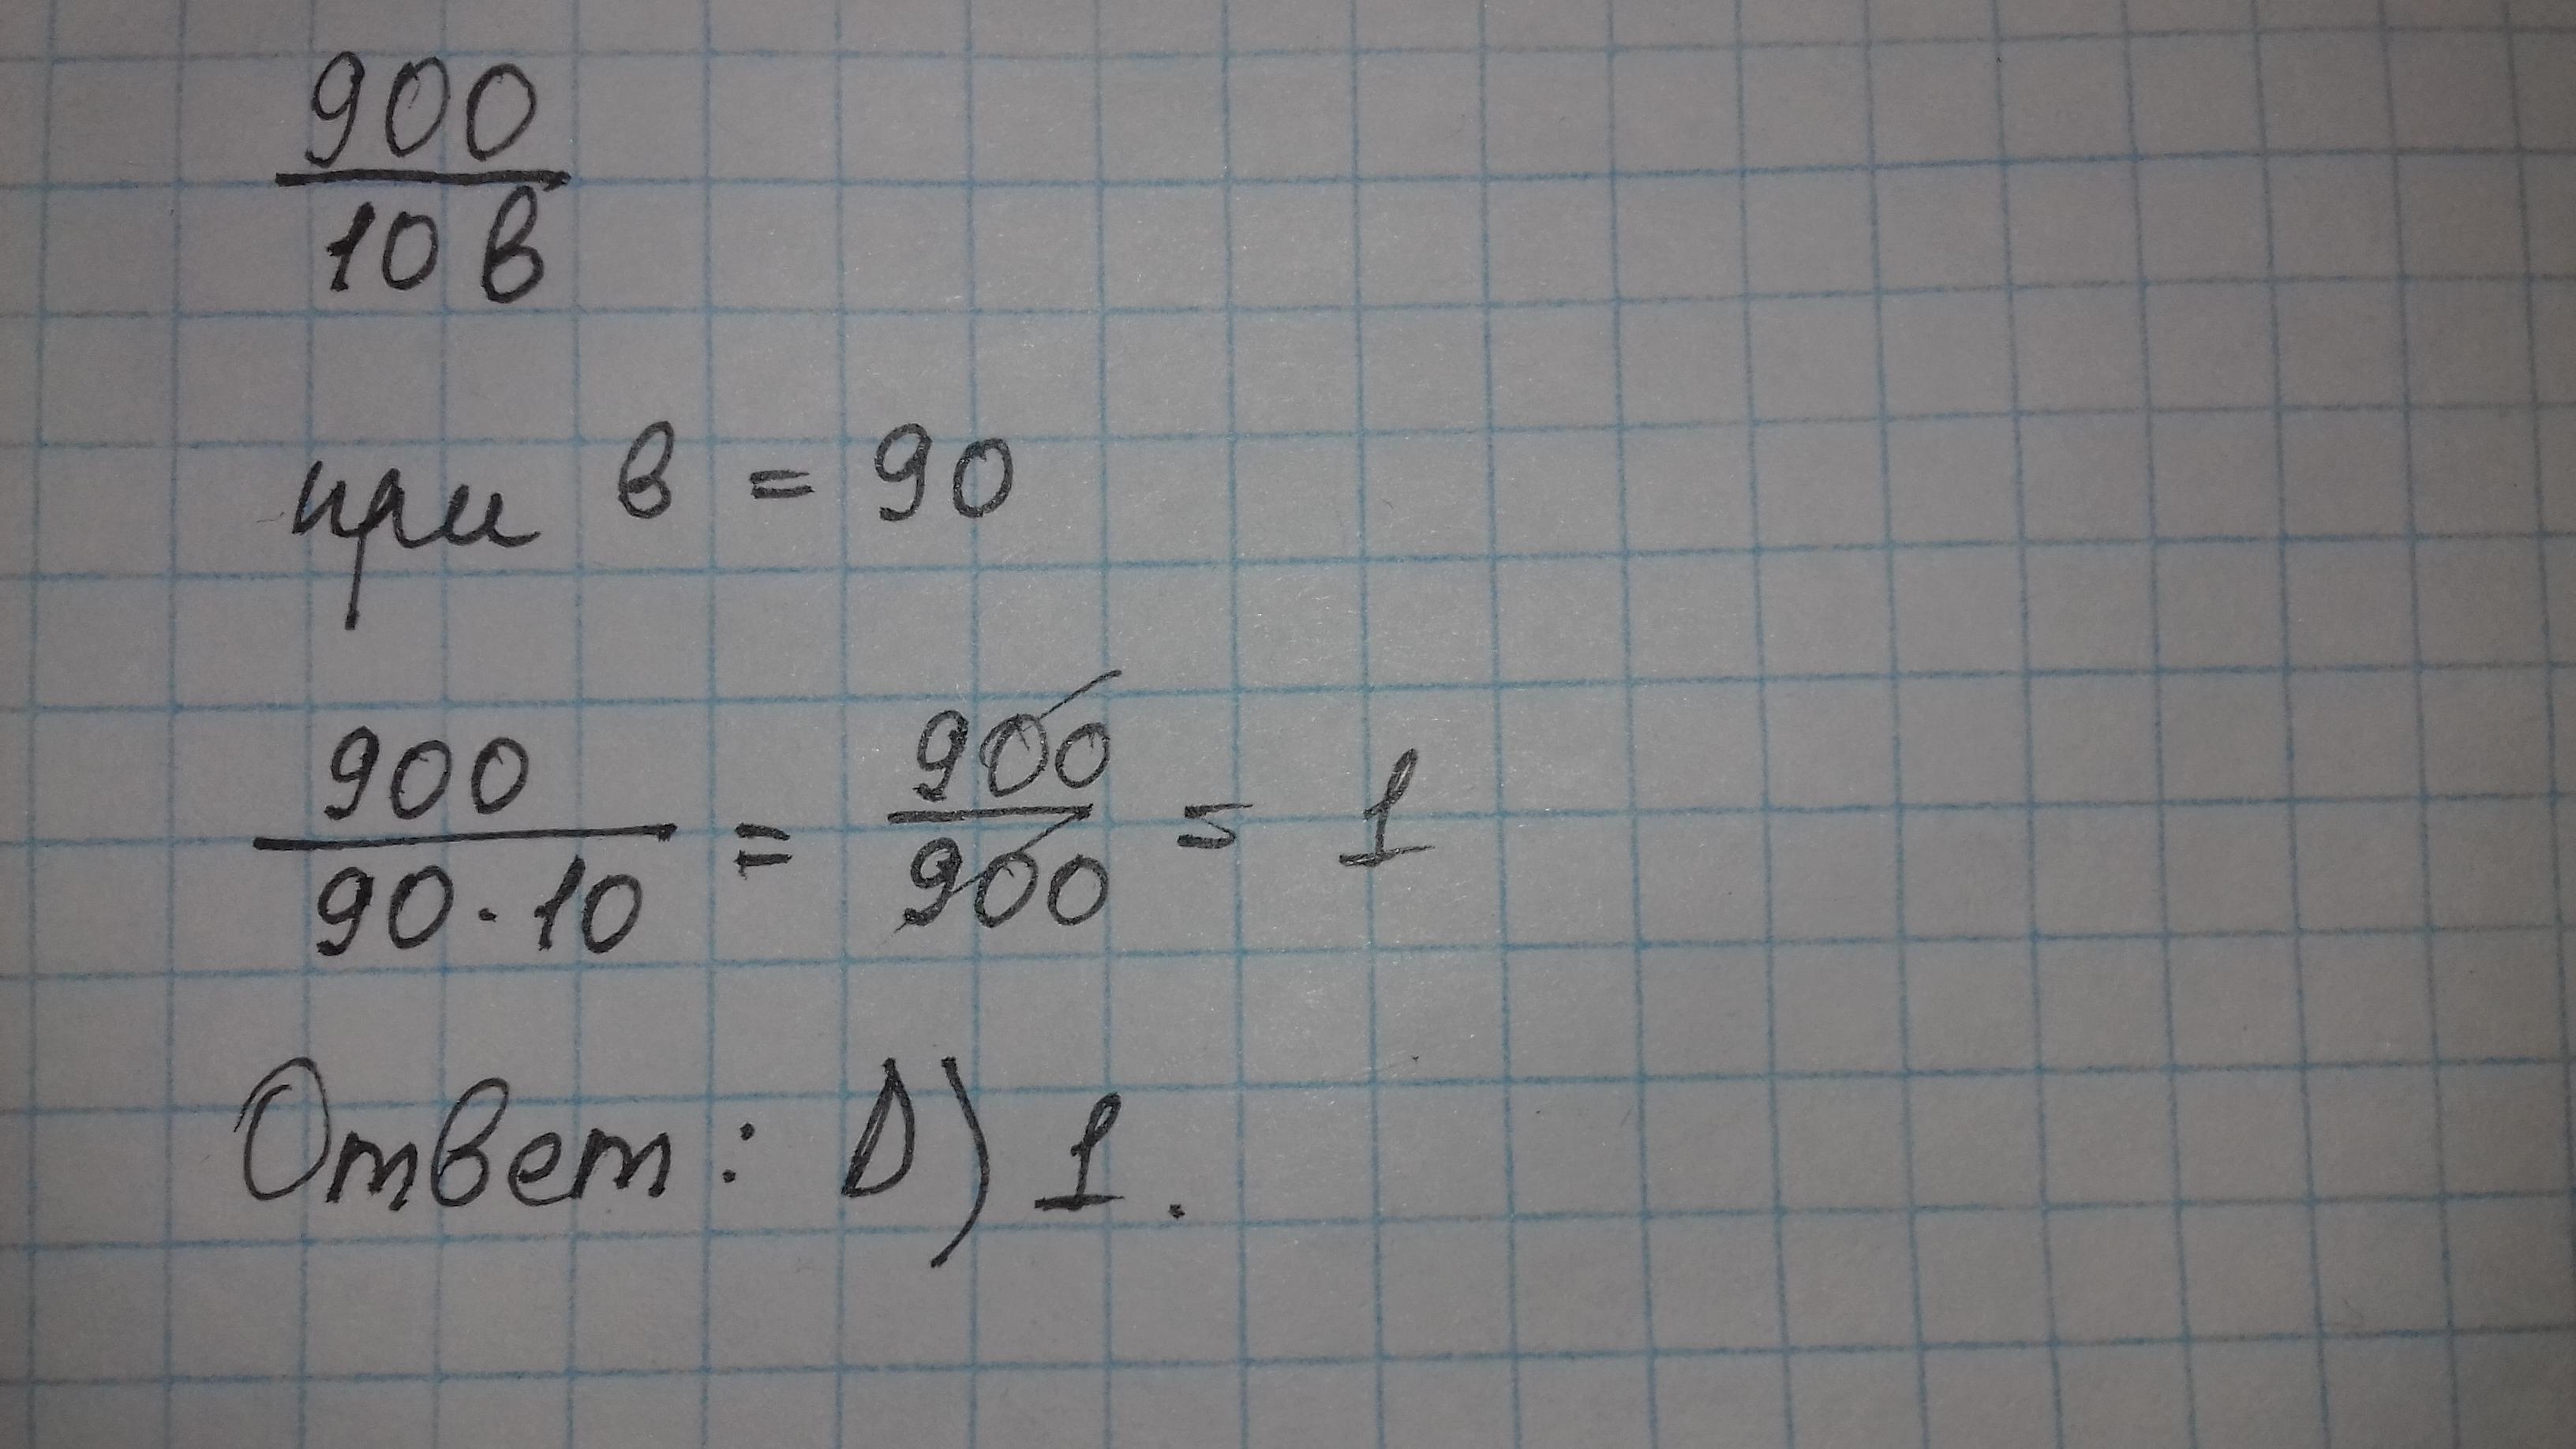 900
10 в
при в = 90
900 / 90 · 10 = 900 / 900 = 1
Ответ: D) 1.